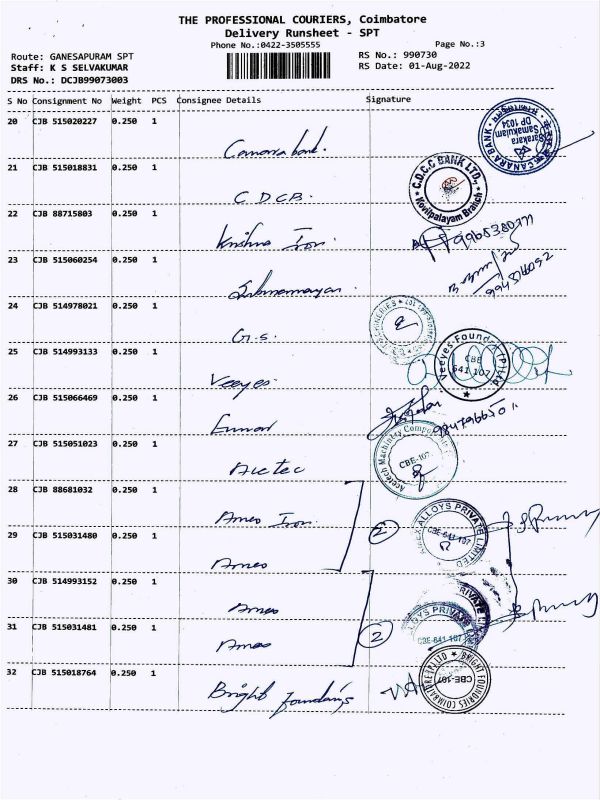 THE PROFESSIONAL COURIERS, Coimbatore
Delivery Runsheet - SPT
Phone No.:0422-3505555
Page No.:3
Route: GANESAPURAM SPT
RS No.: 990730
Staff: K S SELVAKUMAR
RS Date: 01-Aug-2022
DRS No.: DCJB99073003
S No Consignment No Weight PCS Consignee Details Signature
20 CJB 515020227 0.250 1
Canara bank.
CANARA BANK
Sarakara Samakulam
DP 1034
21 CJB 515018831 0.250 1
C.D.C.B.
C.D.C.C BANK LTD.,
Kovilpalayam Branch
22 CJB 88715803 0.250 1
Krishna Iron.
23 CJB 515060254 0.250 1
24 CJB 514978021 0.250 1
G.S.
25 CJB 514993133 0.250 1
Veeyes.
Veeyes Foundry (P) Ltd
CBE
641 107
26 CJB 515066469 0.250 1
27 CJB 515051023 0.250 1
Acetec
Acetech Machinery Components
CBE-107
28 CJB 88681032 0.250 1
Ameo Iron.
2
ALLOYS PRIVATE LIMITED
CBE-641 107
29 CJB 515031480 0.250 1
Ameo
30 CJB 514993152 0.250 1
Ameo
31 CJB 515031481 0.250 1
Ameo
2
CBE-641 107
32 CJB 515018764 0.250 1
Bright Foundries
BRIGHT FOUNDRIES
COIMBATORE (P) LTD
CBE-107